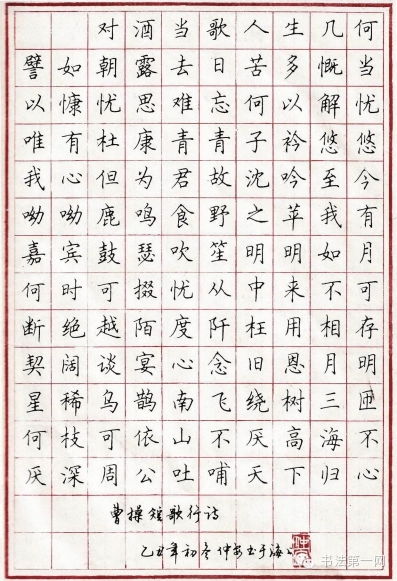 对酒当歌人生几何
譬如朝露去日苦多慨当
以慷忧思难忘何以解忧
唯有杜康青青子衿悠悠
我心但为君故沈吟至今
呦呦鹿鸣食野之苹我有
嘉宾鼓瑟吹笙明明如月
何时可掇忧从中来不可
断绝越陌度阡枉用相存
契阔谈宴心念旧恩月明
星稀乌鹊南飞绕树三匝
何枝可依山不厌高海不
厌深周公吐哺天下归心
曹操短歌行诗
乙丑年初冬仲安书于海上
书法第一网